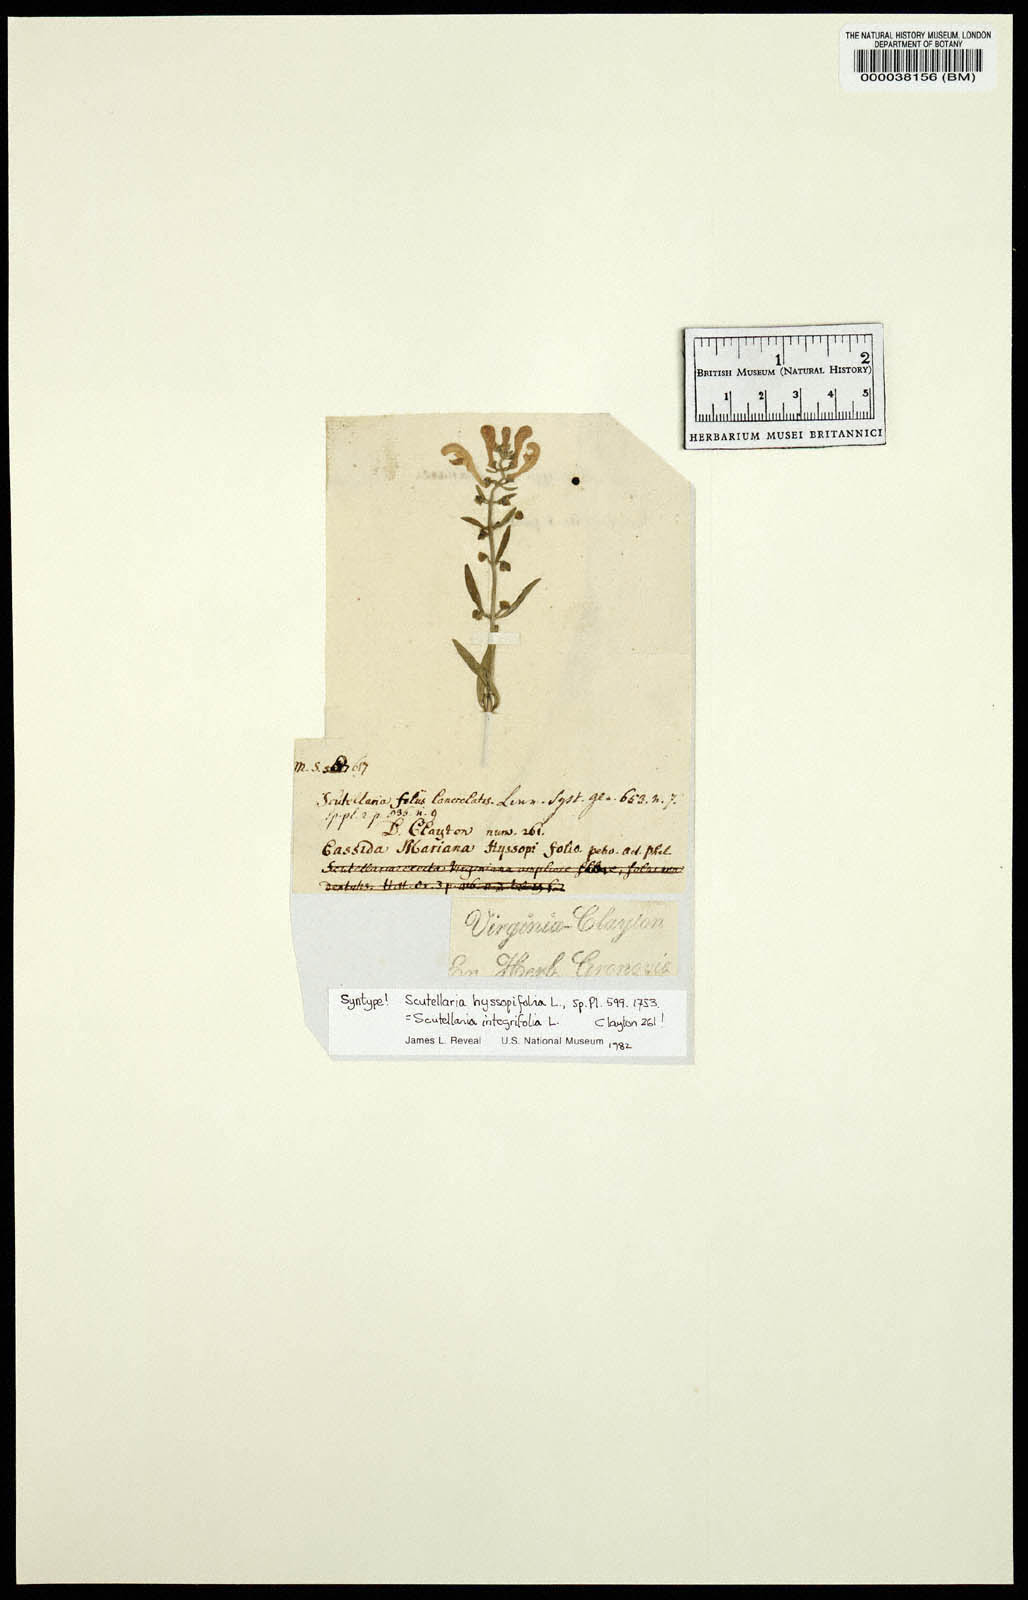 THE NATURAL HISTORY MUSEUM, LONDON
DEPARTMENT OF BOTANY
000038156 (BM)
1 2
BRITISH MUSEUM (NATURAL HISTORY)
1 2 3 4 5
HERBARIUM MUSEI BRITANNICI
m. s. 617
Scutellaria foliis lanceolatis. Linn. Syst. gen. 653. n. 7.
Sp. pl. 2 p. 836 n. 9
D. Clayton num. 261.
Cassida Mariana Hyssopi folio. petiv. act. phil.
Scutellaria erecta Virginiana ampliore flore, foliis non
dentatis. Hist. Ox. 3 p.
Virginia - Clayton
En Herb. Gronovii
Syntype! Scutellaria hyssopifolia L., Sp. Pl. 599. 1753.
= Scutellaria integrifolia L. Clayton 261!
James L. Reveal U.S. National Museum 1982